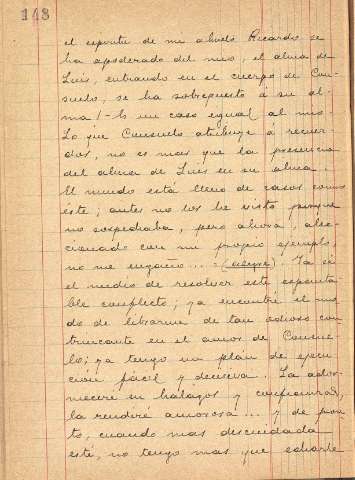 148
el espíritu de mi abuelo Ricardo se
ha apoderado del mío, el alma de
Luis, entrando en el cuerpo de Con-
suelo, se ha sobrepuesto á su al-
ma! - Es un caso igual al mío.
Lo que Consuelo atribuye á recuer-
dos, no es mas que la presencia
del alma de Luis en su alma.
El mundo está lleno de casos como
este; antes no los he visto porque
no sospechaba, pero ahora, alec-
cionado con mi propio ejemplo,
no me engaño.... (alegre). Ya sé
el medio de resolver este espanta-
ble conflicto; ya encontré el mo-
do de librarme de tan odioso con-
trincante en el amor de Consue-
lo; ya tengo un plan de ejecu-
ción fácil y decisiva. La ador-
meceré en halagos y confianzas,
la rendiré amorosa... y de pron-
to, cuando mas descuidada
esté, no tengo mas que echarle